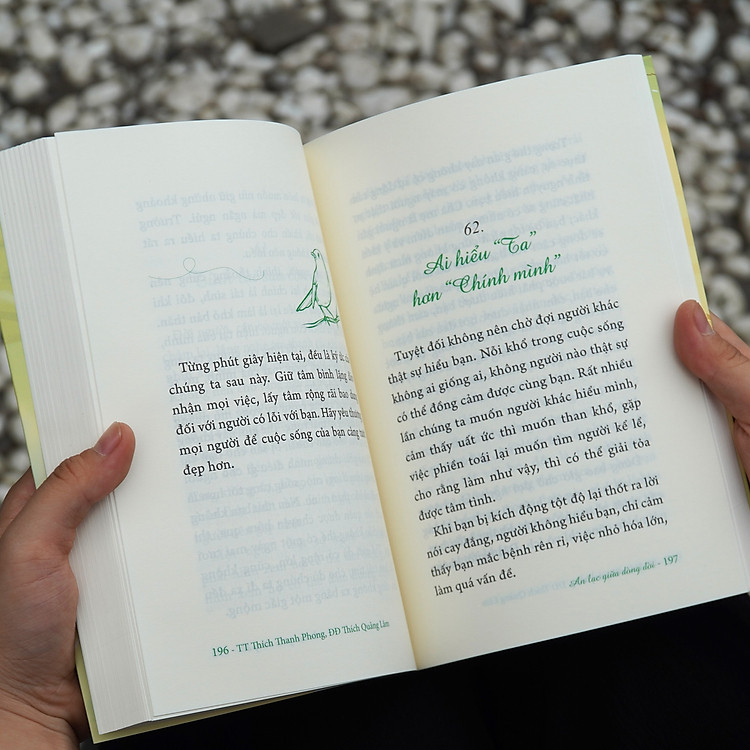 Từng phút giây hiện tại, đều là ký ức của
chúng ta sau này. Giữ tâm bình lặng
nhận mọi việc, lấy tâm rộng rãi bao dung
đối với người có lỗi với bạn. Hãy yêu thương
mọi người để cuộc sống của bạn càng
đẹp hơn.
196 - TT Thích Thanh Phong, ĐĐ Thích Quảng Lâm
62.
Ai hiểu “Ta”
hơn “Chính mình”
Tuyệt đối không nên chờ đợi người khác
thật sự hiểu bạn. Nỗi khổ trong cuộc sống
không ai giống ai, không người nào thật sự
có thể đồng cảm được cùng bạn. Rất nhiều
lần chúng ta muốn người khác hiểu mình,
cảm thấy uất ức thì muốn than khổ, gặp
việc phiền toái lại muốn tìm người kể lể,
cho rằng làm như vậy, thì có thể giải tỏa
được tâm tình.
Khi bạn bị kích động tột độ lại thốt ra lời
nói cay đắng, người không hiểu bạn, chỉ cảm
thấy bạn mắc bệnh rên rỉ, việc nhỏ hóa lớn,
làm quá vấn đề.
An lạc giữa dòng đời - 197